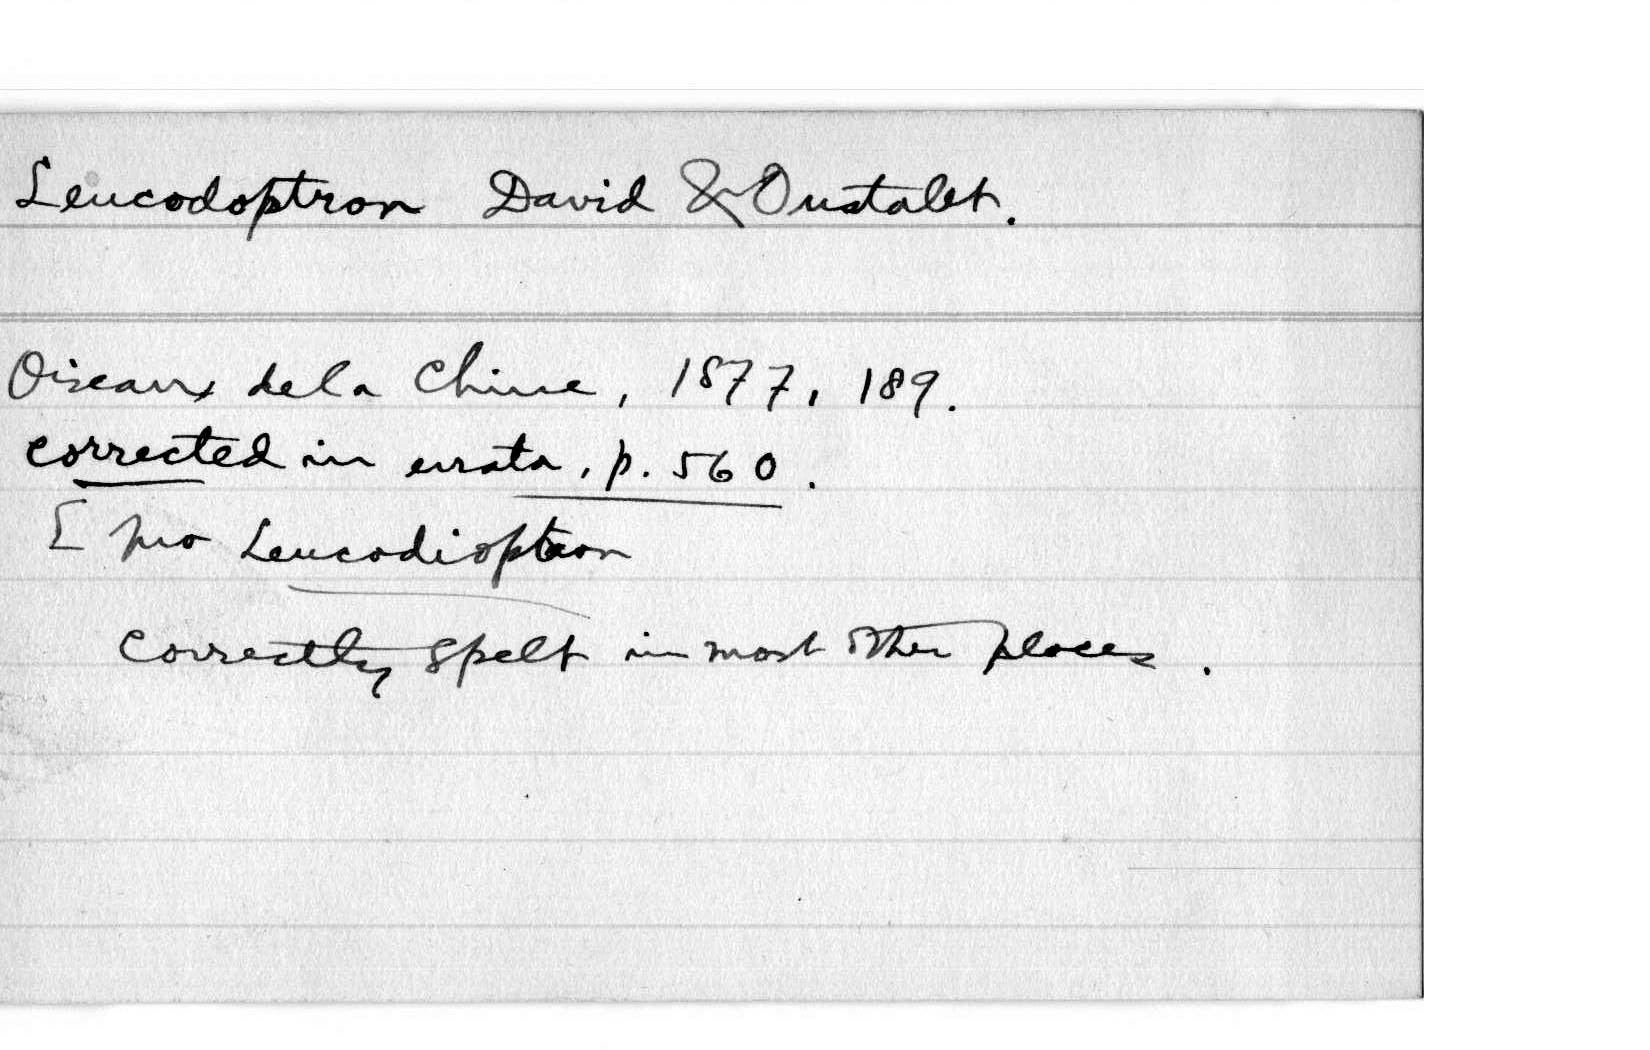 Leucodoptron David & Oustalet.
Oiseaux de la Chine, 1877, 189.
corrected in errata, p. 560.
[ pro Leucodioptron
Correctly spelt in most other places.